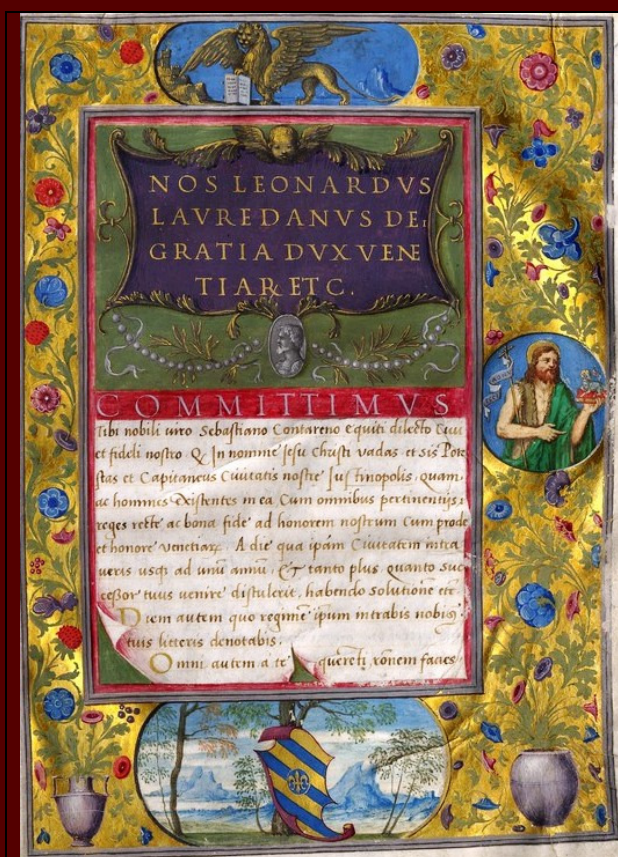 NOS LEONARDVS
LAVREDANVS DEI
GRATIA DVX VENE
TIAR ETC.
COMMITTIMVS
Tibi nobili uiro Sebastiano Contareno Equiti dilecto Ciui
et fideli nostro Q In nomine Jesu Christi vadas et sis Pote
stas et Capitaneus Ciuitatis nostre Justinopolis, quam,
ac homines Existentes in ea Cum omnibus pertinentijs
reges recte ac bona fide ad honorem nostrum Cum prode
et honore venetiarꝝ. A die qua ipam Ciuitatem intra
ueris usqꝫ ad unũ annũ, Et tanto plus quanto suc
cessor tuus venire distulerit, habendo solutione etc
Diem autem quo regimẽ ipum intrabis nobis
tuis litteris denotabis.
Omni autem a te querenti rõnem facies